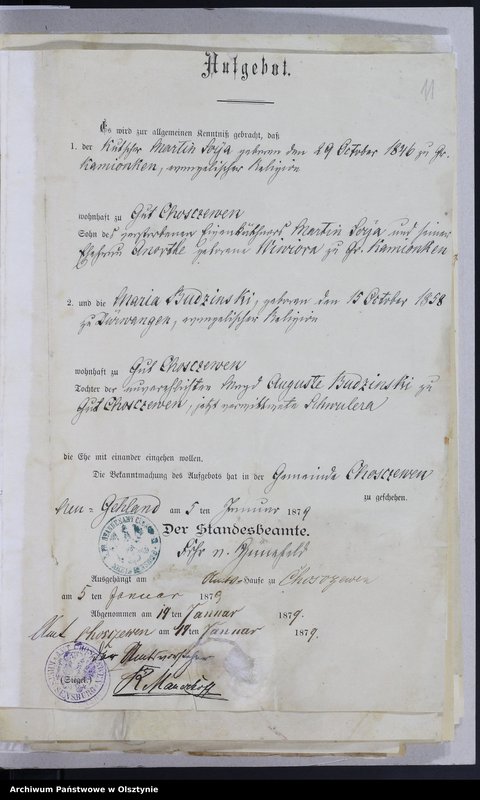 Aufgebot.
11
Es wird zur allgemeinen Kenntniß gebracht, daß
1. der Kutscher Martin Soja geboren den 29 October 1846 zu Gr.
Kamionken, evangelischer Religion
wohnhaft zu Gut Choszewen
Sohn des verstorbenen Eigenkäthners Martin Soja und seiner
Ehefrau Anorthe geborene Wiwiora zu Gr. Kamionken
2. und die Maria Budzinski, geboren den 15 October 1858
zu Dürwangen, evangelischer Religion
wohnhaft zu Gut Choszewen
Tochter der unverehelichten Magd Auguste Budzinski zu
Gut Choszewen, jetzt verwittwete Schwulera
die Ehe mit einander eingehen wollen.
Die Bekanntmachung des Aufgebots hat in der Gemeinde Choszewen
zu geschehen.
Neu-Gehland am 5 ten Januar 1879
Der Standesbeamte.
Frhr v.
Ausgehängt am Amts-Hause zu Choszewen
am 5 ten Januar 1879
Abgenommen am 19 ten Januar 1879.
Amt Choszewen am 19 ten Januar 1879.
Der Amtsvorsteher
(Siegel.)
SENSBURG
Archiwum Państwowe w Olsztynie